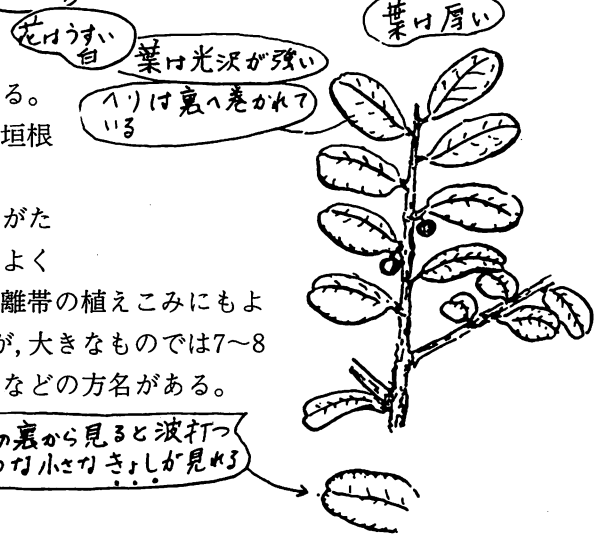 花はうすい
白
葉は厚い
葉は光沢が強い
ヘリは裏へ巻かれて
いる
る。
垣根
がた
よく
離帯の植えこみにもよ
が，大きなものでは7〜8
などの方名がある。
の裏から見ると波打つ
うな小さなきょしが見れる